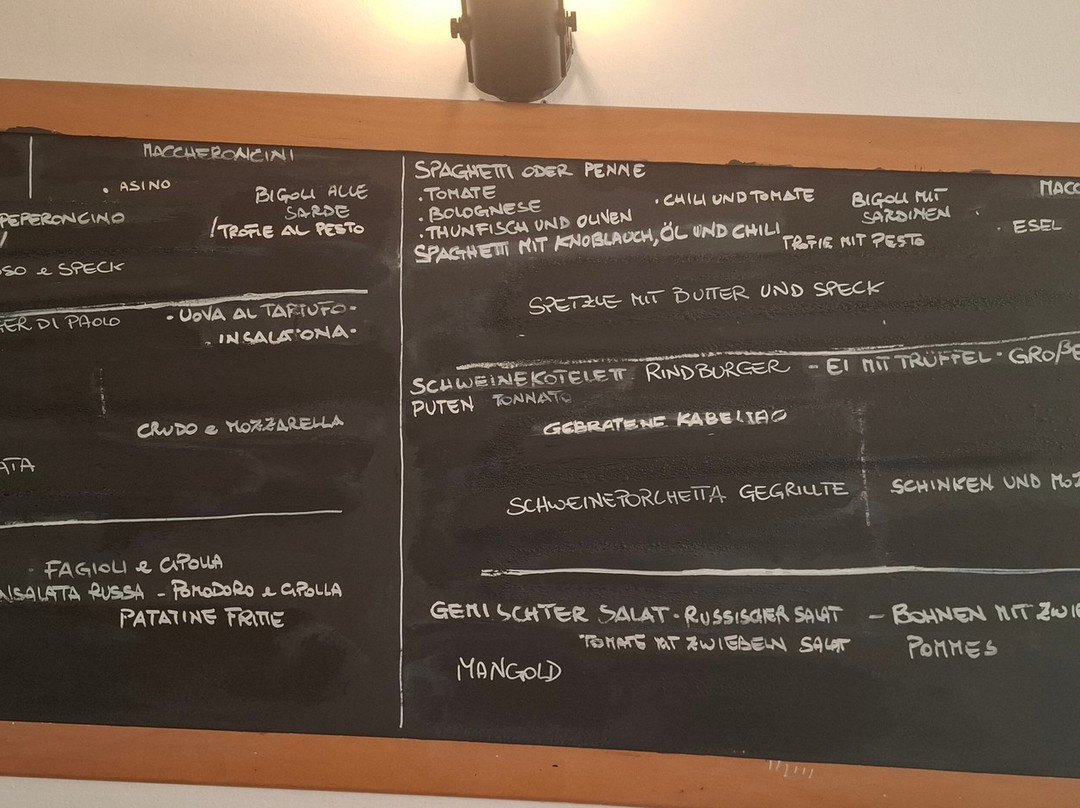 MACCHERONCINI
. ASINO
BIGOLI ALLE
SARDE
PEPERONCINO
/TROFIE AL PESTO
SO e SPECK
ER DI PAOLO
• UOVA AL TARTUFO •
. INSALATONA •
CRUDO e MOZZARELLA
ATA
- FAGIOLI e CIPOLLA
NSALATA RUSSA - POMODORO e CIPOLLA
PATATINE FRITTE
SPAGHETTI ODER PENNE
. TOMATE
. BOLOGNESE
. THUNFISCH UND OLIVEN
SPAGHETTI MIT KNOBLAUCH, ÖL UND CHILI
. CHILI UND TOMATE
BIGOLI MIT
SARDINEN
TROFIE MIT PESTO
MACC
. ESEL
SPETZLE MIT BUTTER UND SPECK
SCHWEINEKOTELETT RINDBURGER - EI MIT TRÜFFEL • GROßE
PUTEN TONNATO
GEBRATENE KABELIAO
SCHWEINEPORCHETTA GEGRILLTE
SCHINKEN UND MOZ
GEMISCHTER SALAT • RUSSISCHER SALAT - BOHNEN MIT ZWIE
TOMATE MIT ZWIEBELN SALAT POMMES
MANGOLD